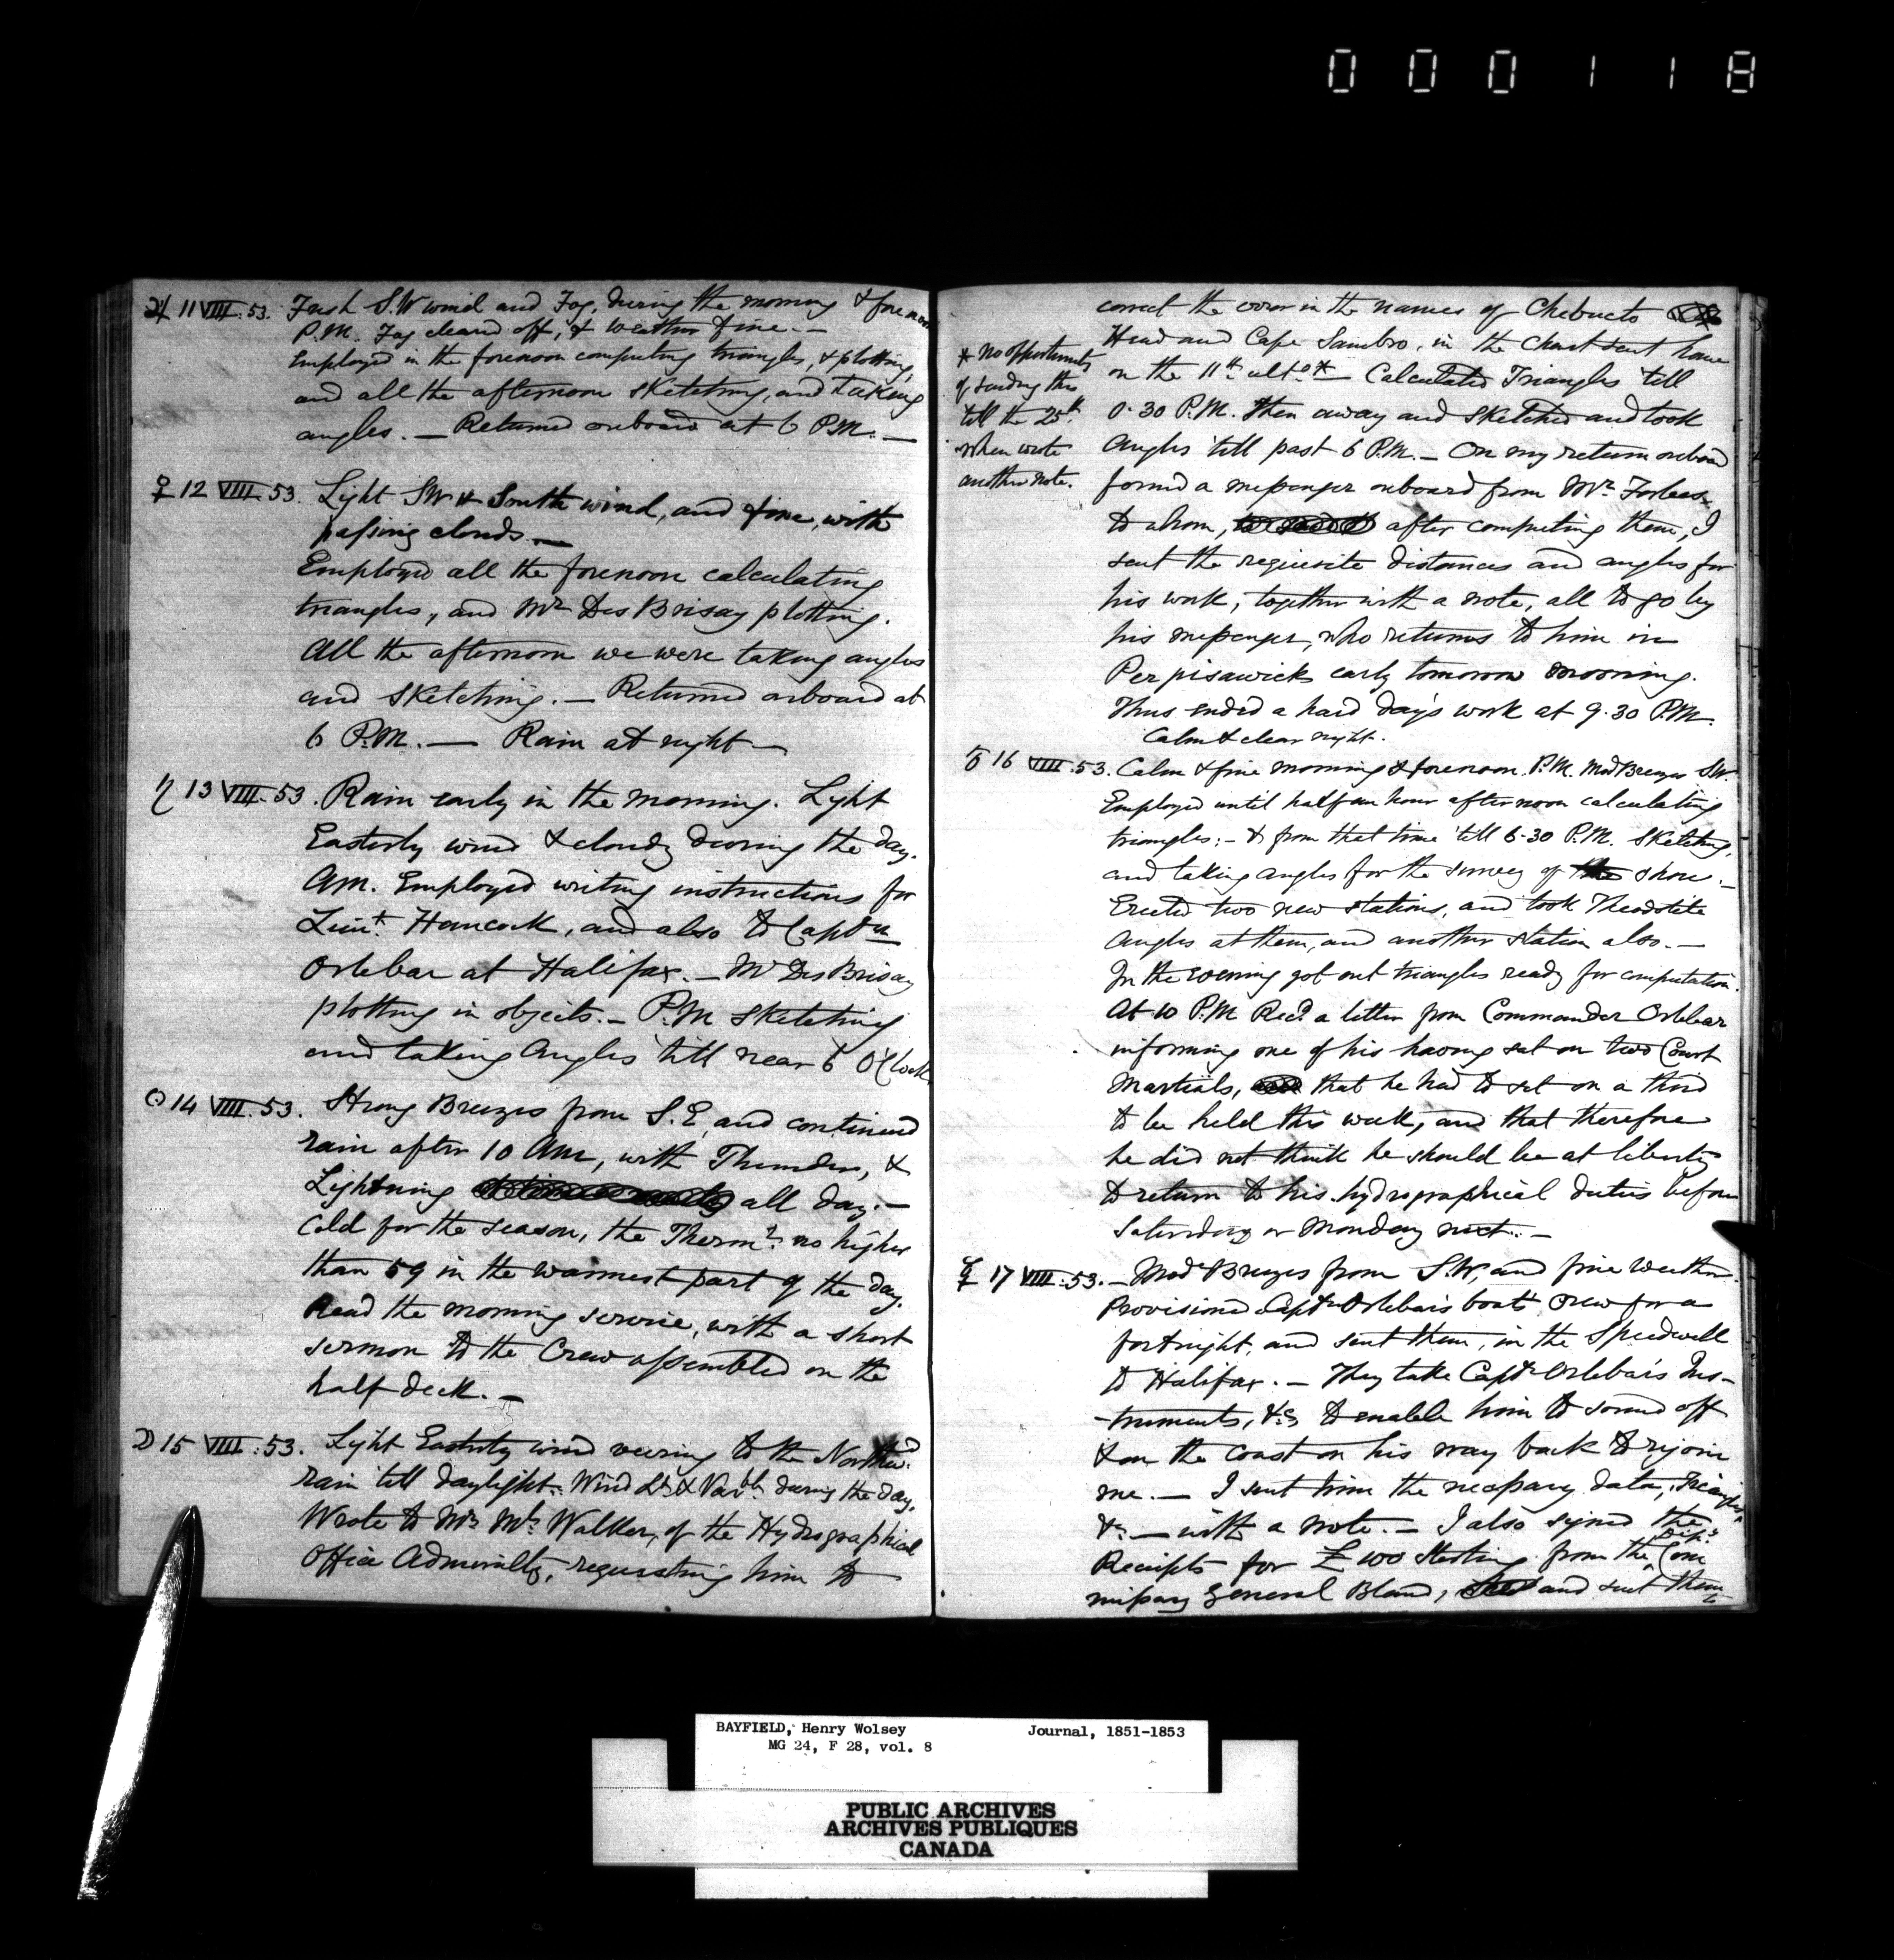 000118
♃ 11 VIII. 53. Fresh S.W wind and Fog, during the morning & forenoon
P.M. Fog cleared off, & weather fine. —
Employed in the forenoon computing triangles, & plotting,
and all the afternoon sketching, and taking
angles. — Returned onboard at 6 P.M. —
♀ 12 VIII. 53. Light SW & South wind, and fine, with
passing clouds —
Employed all the forenoon calculating
triangles, and Mr Des Brisay plotting.
All the afternoon we were taking angles
and sketching. — Returned onboard at
6 P.M. — Rain at night —
♄ 13 VIII. 53. Rain early in the morning. Light
Easterly wind & cloudy during the day.
AM. Employed writing instructions for
Lieut. Hancock, and also to Captn
Orlebar at Halifax. — Mr Des Brisay
plotting in objects. — P.M sketching
and taking Angles till near 6 O'Clock
☉ 14 VIII. 53. Strong Breezes from S.E, and continued
rain after 10 AM, with Thunder, &
Lightning all day. —
Cold for the season, the Thermr. no higher
than 59 in the warmest part of the day.
Read the morning service, with a short
sermon to the Crew assembled on the
half deck. —
☽ 15 VIII. 53. Light Easterly wind veering to the Northwd.
rain till daylight. Wind Lt. & Varble during the day.
Wrote to Mr Walker, of the Hydrographical
Office Admiralty, requesting him to
correct the error in the names of Chebucto
Head and Cape Sambro, in the Chart sent home
on the 11th. ulto. * — Calculated Triangles 'till
0.30 P.M. then away and sketched and took
Angles 'till past 6 P.M. — On my return onboard
found a messenger onboard from Mr. Forbes
to whom, after computing them, I
sent the requisite distances and angles for
his work, together with a note, all to go by
his messenger, who returns to him in
Perpisawick early tomorrow morning.
Thus ended a hard day's work at 9.30 P.M.
Calm & clear night.
* no opportunity
of sending this
till the 25th.
when wrote
another note.
♂ 16 VIII. 53. Calm & fine morning & forenoon. P.M. Mod Breezes SW.
Employed until half an hour afternoon calculating
triangles: — & from that time 'till 6.30 P.M. sketching,
and taking angles for the survey of the shore. —
Erected two new stations, and took Theodolite
Angles at them, and another station also. —
In the evening got out triangles ready for computation.
At 10 P.M Recd. a letter from Commander Orlebar
informing me of his having sat on two Court
Martials, that he had to sit on a third
to be held this week, and that therefore
he did not think he should be at liberty
to return to his hydrographical duties before
Saturday or Monday next. —
☿ 17 VIII. 53. — Mod Breezes from S.W, and fine weather.
Provisioned Captn Orlebar's boat's crew for a
fortnight, and sent them, in the Speedwell
to Halifax. — They take Captn Orlebar's Ins-
-truments, &c. to enable him to sound off
& on the coast on his way back to rejoin
me. — I sent him the necessary data, Triangles
&c. — with a note. — I also signed the
Receipts for £100 Sterling from the Depy. Com
missary General Bland, and sent them
to
BAYFIELD, Henry Wolsey Journal, 1851-1853
MG 24, F 28, vol. 8
PUBLIC ARCHIVES
ARCHIVES PUBLIQUES
CANADA